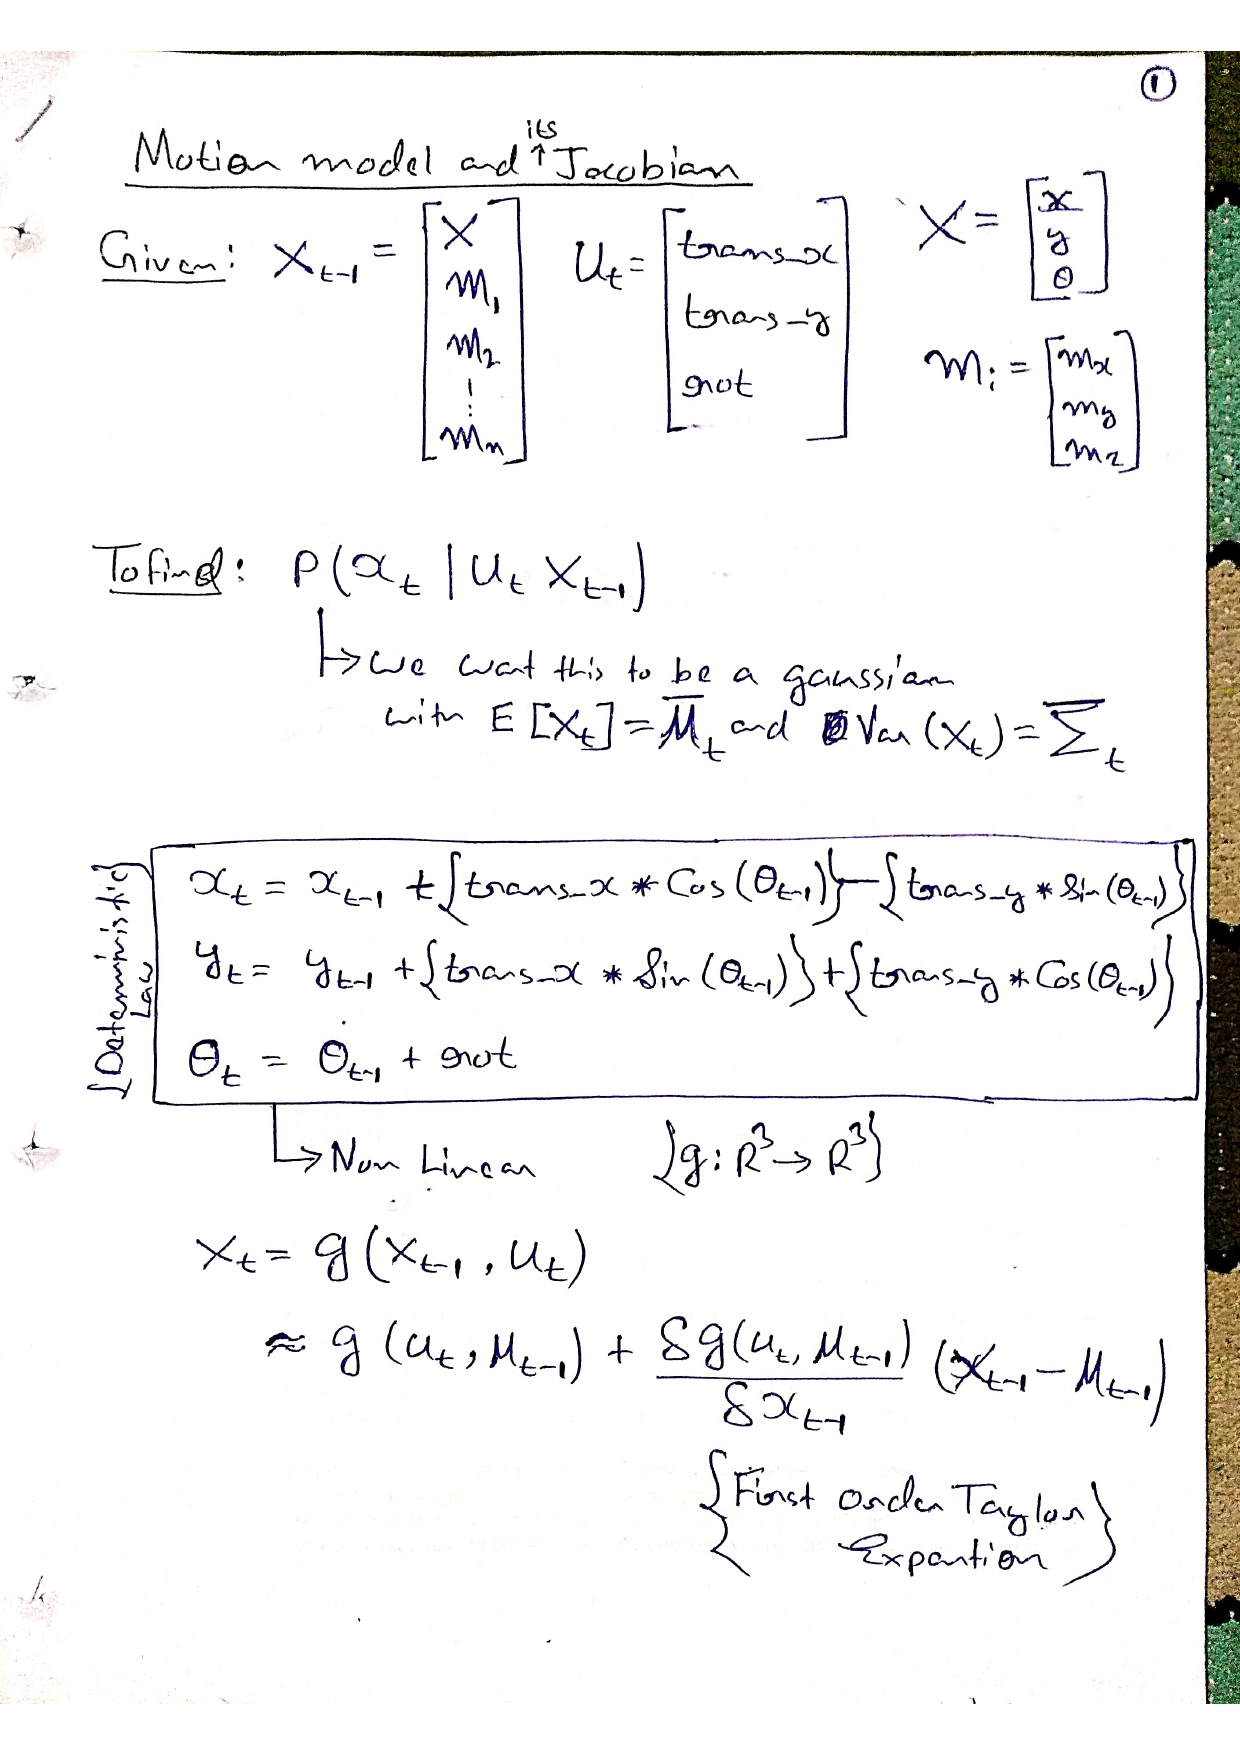 ①
Motion model and its Jacobian
Given: X_{t-1} = [X m_1 m_2 ⋮ m_n] U_t = [trans_x trans_y rot] X = [x y θ]
m_i = [m_x m_y m_z]
To find: P(x_t | U_t X_{t-1})
↳ we want this to be a gaussian
with E[X_t] = μ̄_t and Var(X_t) = Σ̄_t
{Deterministic Law}
x_t = x_{t-1} + {trans_x * Cos(θ_{t-1})} - {trans_y * Sin(θ_{t-1})}
y_t = y_{t-1} + {trans_x * Sin(θ_{t-1})} + {trans_y * Cos(θ_{t-1})}
θ_t = θ_{t-1} + rot
↳ Non Linear {g: R^3 → R^3}
X_t = g(X_{t-1}, U_t)
≈ g(u_t, μ_{t-1}) + δg(u_t, μ_{t-1}) / δx_{t-1} (X_{t-1} - μ_{t-1})
{First order Taylor
Expantion}